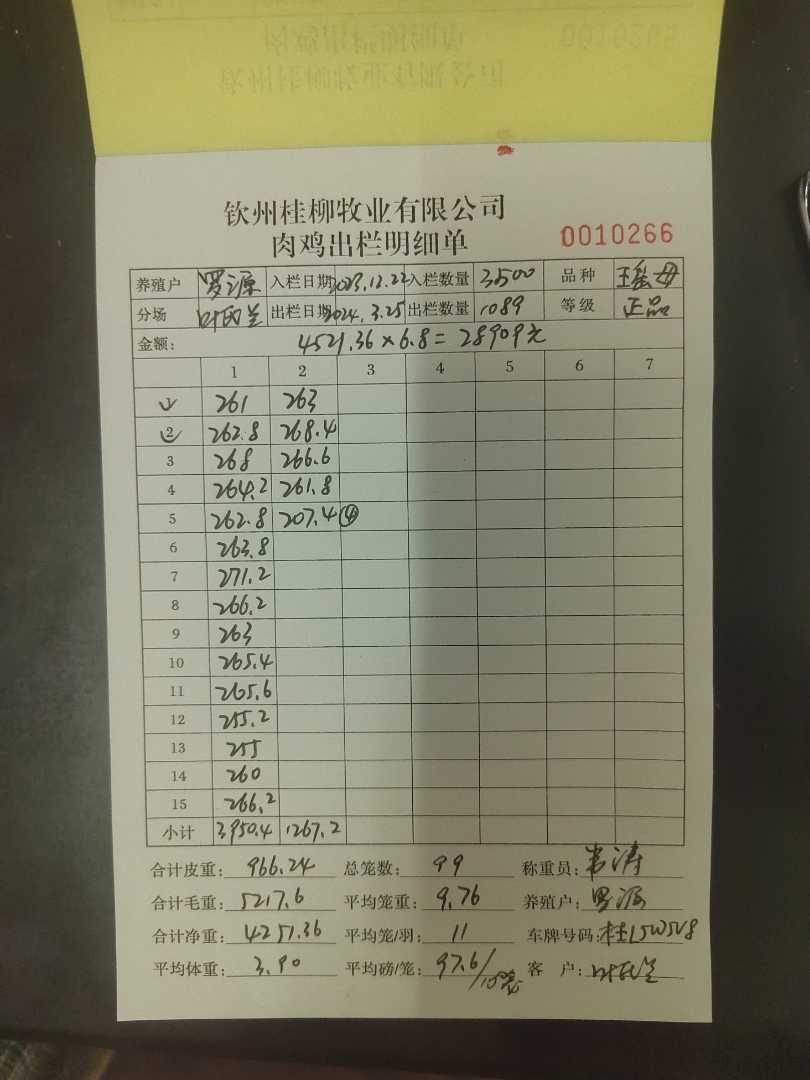 钦州桂柳牧业有限公司
肉鸡出栏明细单 0010266
养殖户 罗源 入栏日期 2023.12.22 入栏数量 3500 品种 王瑶母
分场 叶民兰 出栏日期 2024.3.25 出栏数量 1089 等级 正品
金额: 4521.36×6.8=28909元
1 2 3 4 5 6 7
1 261 263
2 262.8 268.4
3 268 266.6
4 264.2 261.8
5 262.8 207.4 ④
6 263.8
7 271.2
8 266.2
9 263
10 265.4
11 265.6
12 255.2
13 255
14 260
15 266.2
小计 3950.4 1267.2
合计皮重: 966.24 总笼数: 99 称重员: 涛
合计毛重: 5217.6 平均笼重: 9.76 养殖户: 罗源
合计净重: 4251.36 平均笼/羽: 11 车牌号码:
平均体重: 3.90 平均磅/笼: 97.6/ 客 户: 叶民兰